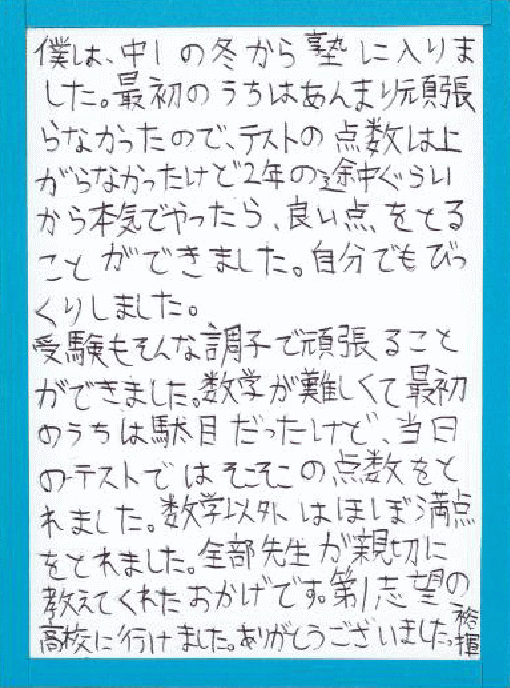 僕は、中1の冬から塾に入りま
した。最初のうちはあんまり頑張
らなかったので、テストの点数は上
がらなかったけど2年の途中ぐらい
から本気でやったら、良い点をとる
ことができました。自分でもびっ
くりしました。
受験もそんな調子で頑張ること
ができました。数学が難しくて最初
のうちは駄目だったけど、当日
のテストではそこそこの点数をと
れました。数学以外はほぼ満点
をとれました。全部先生が親切に
教えてくれたおかげです。第1志望の
高校に行けました。ありがとうございました。
裕揮